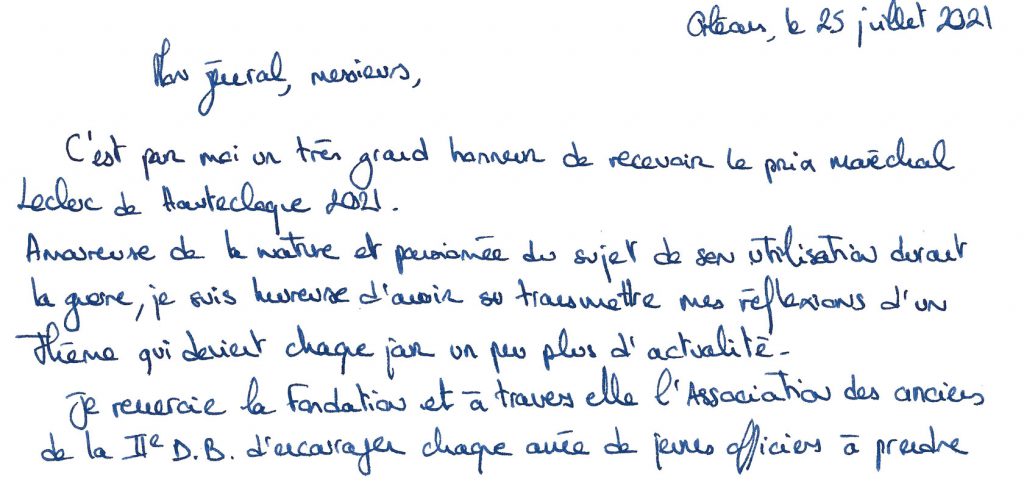 Orléans, le 25 juillet 2021
Mon général, messieurs,
C'est pour moi un très grand honneur de recevoir le prix maréchal
Leclerc de Hauteclocque 2021.
Amoureuse de la nature et passionnée du sujet de son utilisation durant
la guerre, je suis heureuse d'avoir su transmettre mes réflexions d'un
thème qui devient chaque jour un peu plus d'actualité.
Je remercie la Fondation et à travers elle l'Association des anciens
de la IIe D.B. d'encourager chaque année de jeunes officiers à prendre